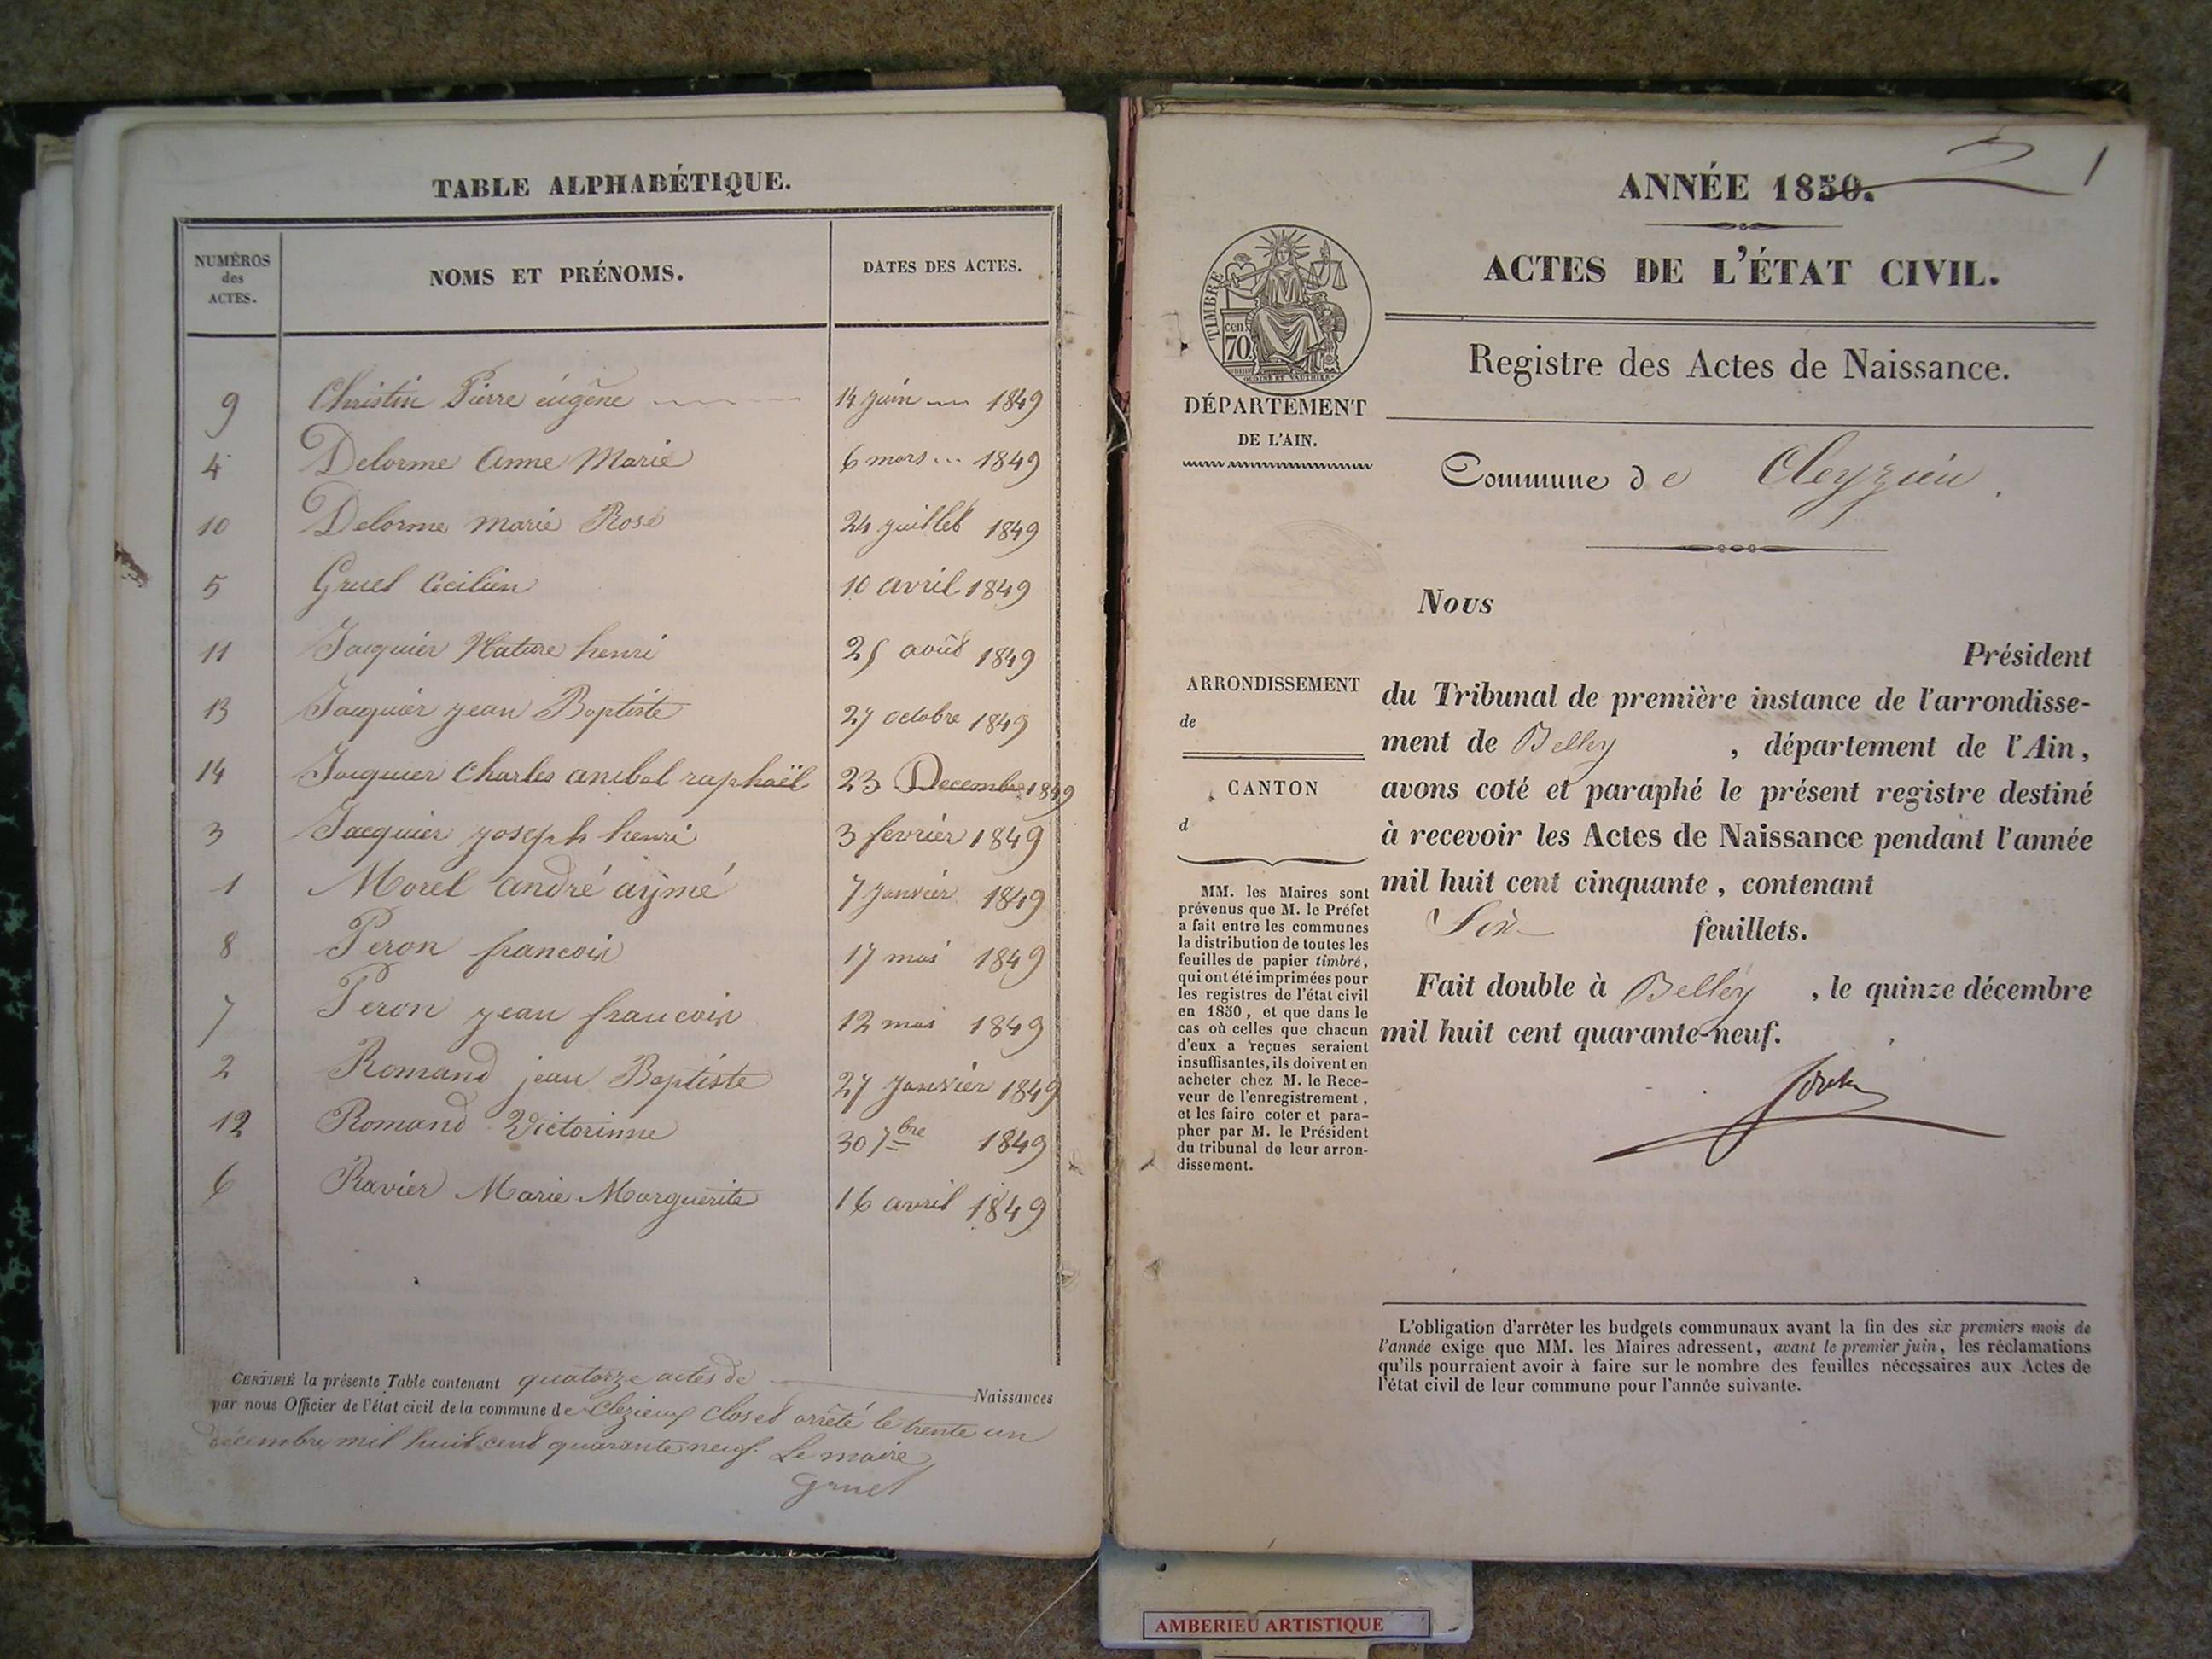 TABLE ALPHABÉTIQUE.
NUMÉROS
des
ACTES.
NOMS ET PRÉNOMS.
DATES DES ACTES.
9 Christin Pierre éugêne 14 juin 1849
4 Delorme Anne Marie 6 mars 1849
10 Delorme Marie Rose 24 juillet 1849
5 Gruel Cécilien 10 avril 1849
11 Jacquier henri 25 août 1849
13 Jacquier jean Baptiste 27 octobre 1849
14 Jacquier Charles anibal raphaël 23 Decembre 1849
3 Jacquier joseph henri 3 fevrier 1849
1 Morel andré aymé 7 Janvier 1849
8 Peron francois 17 mai 1849
7 Peron jean francois 12 mai 1849
2 Romand jean Baptiste 27 Janvier 1849
12 Romand Victorinne 30 7bre 1849
6 Ravier Marie Marguerite 16 avril 1849
CERTIFIÉ la présente Table contenant quatorze actes de Naissances
par nous Officier de l'état civil de la commune de Clezieux clos et arrêté le trente un
décembre mil huit cent quarante neuf. Le maire
Gruel
1
ANNÉE 1850.
ACTES DE L'ÉTAT CIVIL.
Registre des Actes de Naissance.
TIMBRE
cen.
70.
OUDINÉ ET VAUTHIER
DÉPARTEMENT
DE L'AIN.
Commune de Cleyzieu.
Nous
Président
du Tribunal de première instance de l'arrondisse-
ment de Belley , département de l'Ain,
avons coté et paraphé le présent registre destiné
à recevoir les Actes de Naissance pendant l'année
mil huit cent cinquante, contenant
Six feuillets.
Fait double à Belley , le quinze décembre
mil huit cent quarante-neuf.
ARRONDISSEMENT
de
CANTON
d
MM. les Maires sont
prévenus que M. le Préfet
a fait entre les communes
la distribution de toutes les
feuilles de papier timbré,
qui ont été imprimées pour
les registres de l'état civil
en 1850, et que dans le
cas où celles que chacun
d'eux a reçues seraient
insuffisantes, ils doivent en
acheter chez M. le Rece-
veur de l'enregistrement,
et les faire coter et para-
pher par M. le Président
du tribunal de leur arron-
dissement.
L'obligation d'arrêter les budgets communaux avant la fin des six premiers mois de
l'année exige que MM. les Maires adressent, avant le premier juin, les réclamations
qu'ils pourraient avoir à faire sur le nombre des feuilles nécessaires aux Actes de
l'état civil de leur commune pour l'année suivante.
AMBERIEU ARTISTIQUE